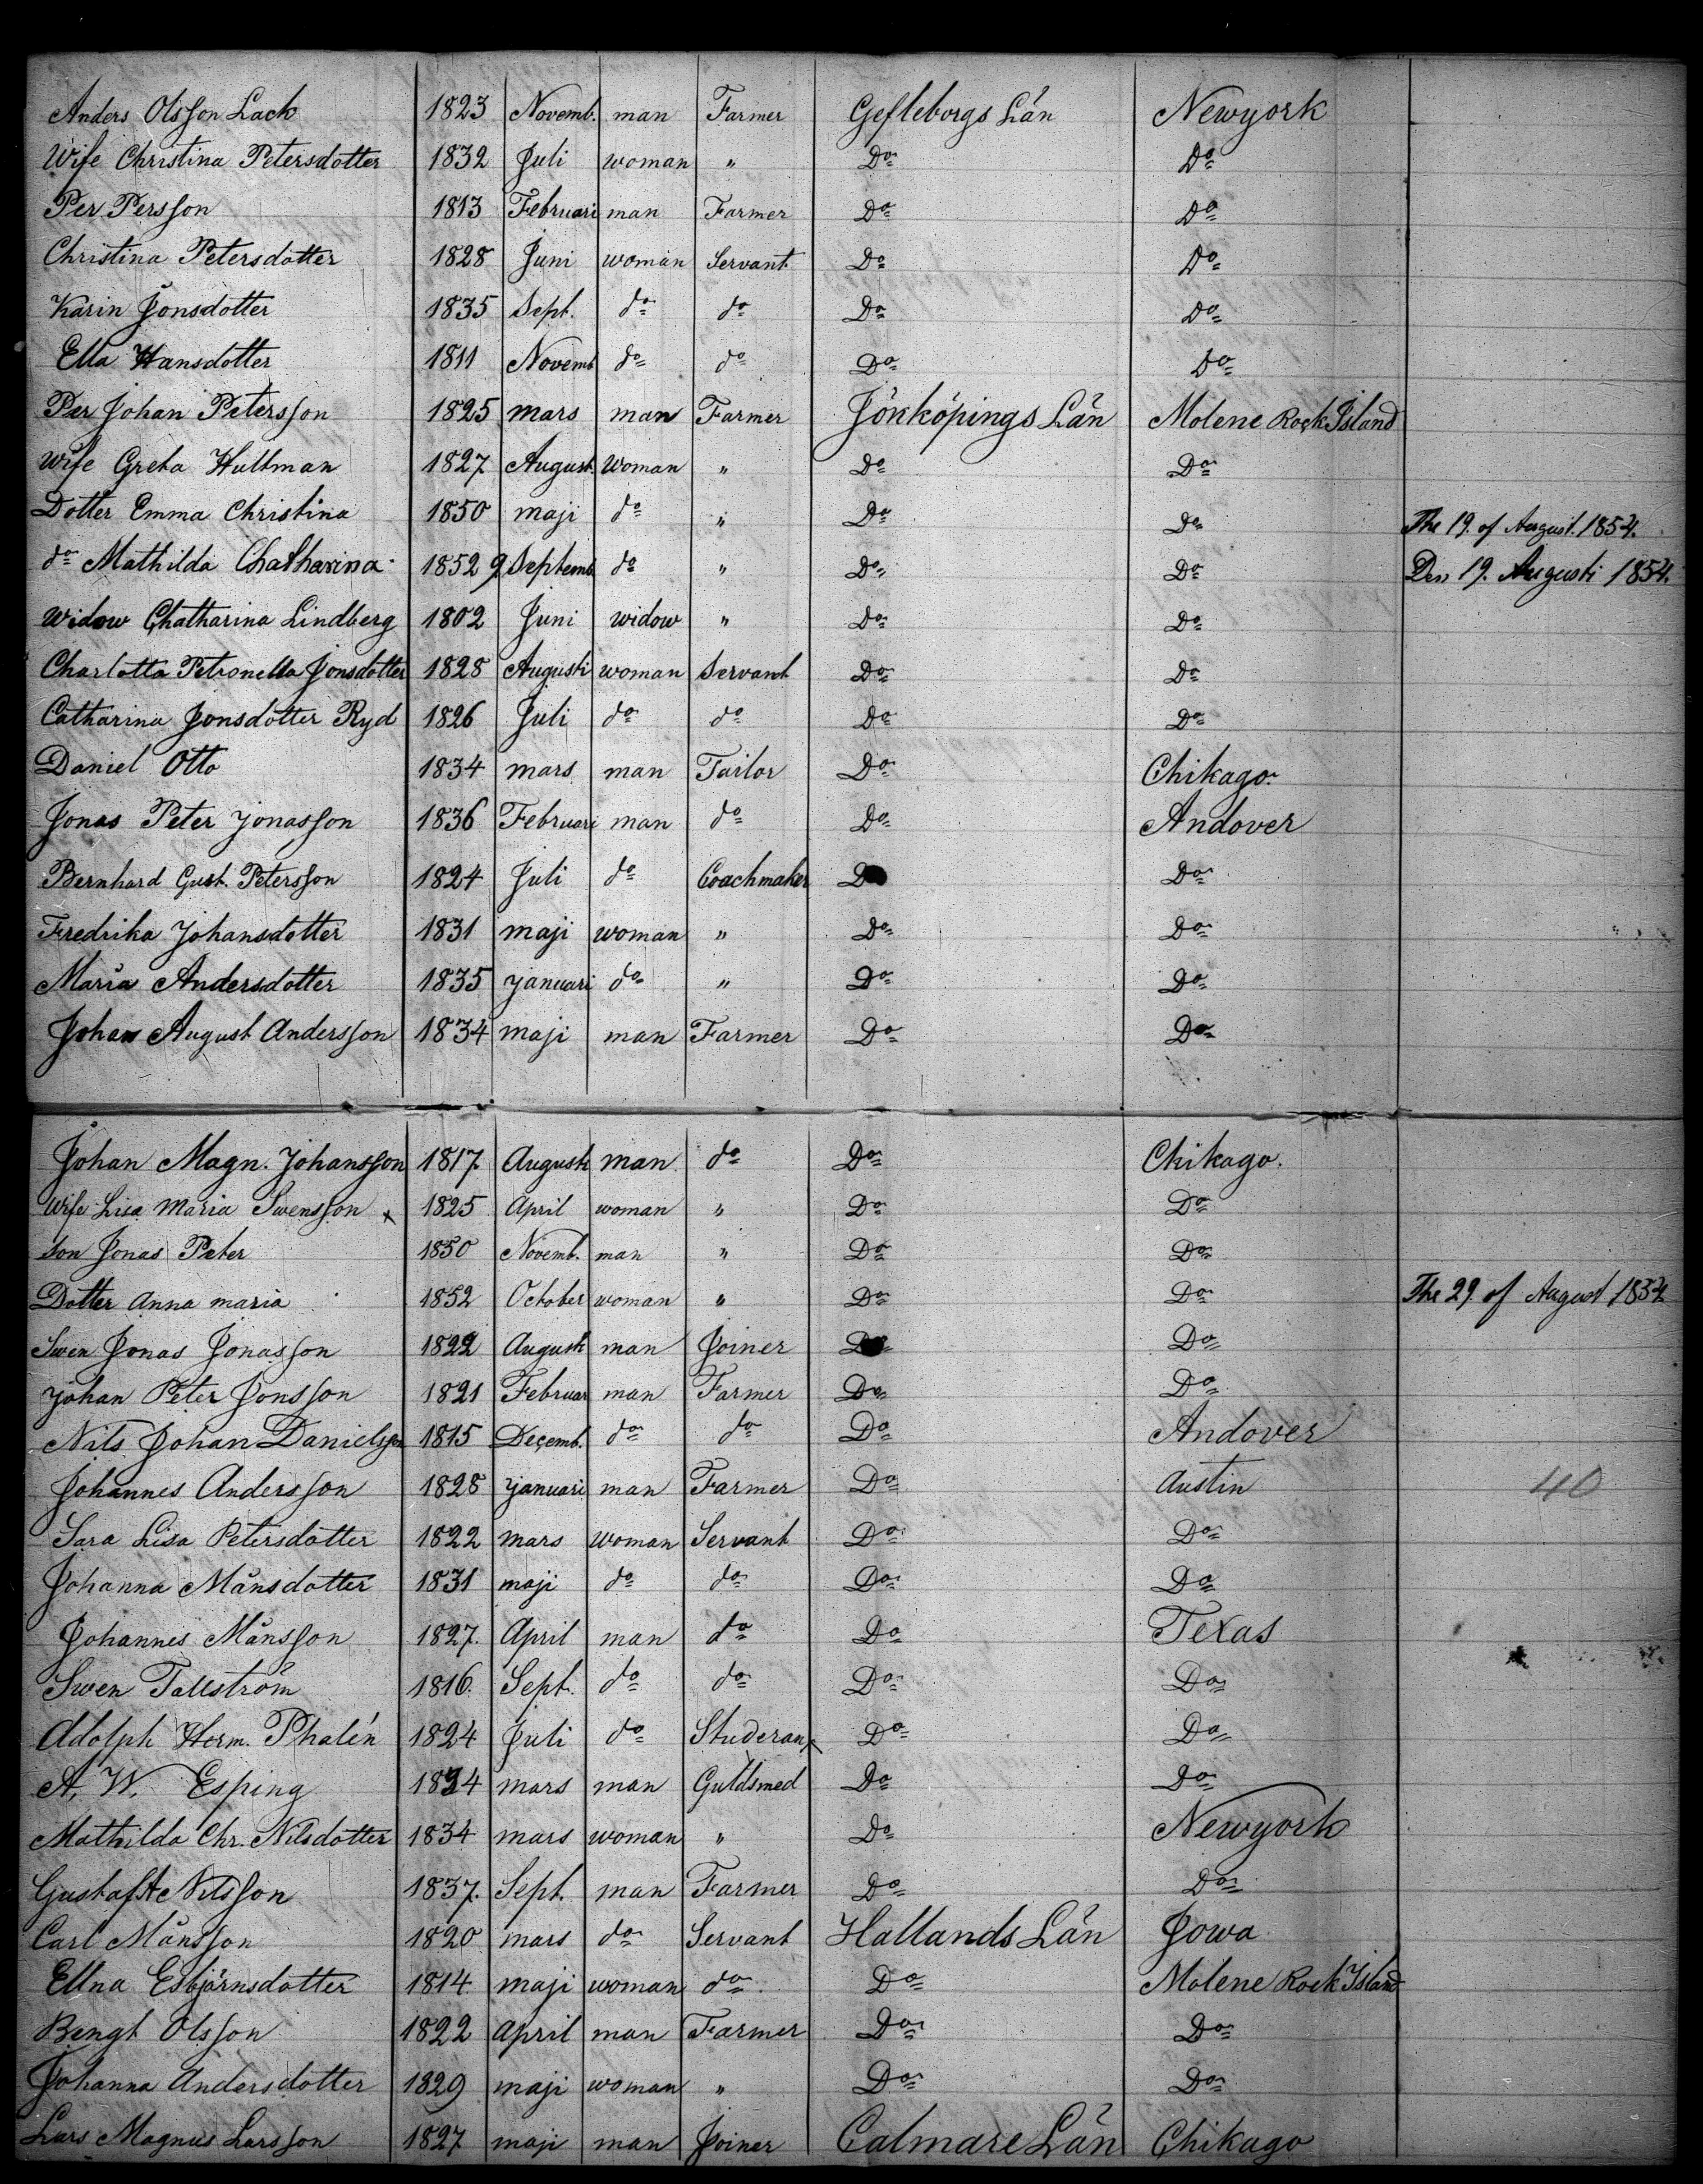 Anders Olsson Lack 1823 Novemb. man Farmer Gefleborgs Län Newyork
Wife Christina Petersdotter 1832 Juli woman " Do Do
Per Persson 1813 Februari man Farmer Do Do
Christina Petersdotter 1828 Juni woman Servant Do Do
Karin Jonsdotter 1835 Sept. do do Do Do
Ella Hansdotter 1811 Novemb do do Do Do
Per Johan Petersson 1825 mars man Farmer Jönköpings Län Molene Rock Island
Wife Greta Hultman 1827 August. Woman " Do Do
Dotter Emma Christina 1850 maji do " Do Do The 19. of August. 1854.
do Mathilda Chatharina 1852 9 Septemb do " Do Do Den 19. Augusti 1854.
Widow Chatharina Lindberg 1802 Juni widow " Do Do
Charlotta Petronella Jonsdotter 1828 Augusti woman Servant Do Do
Catharina Jonsdotter Ryd 1826 Juli do do Do Do
Daniel Otto 1834 mars man Tailor Do Chikago.
Jonas Peter Jonasson 1836 Februari man do Do Andover
Bernhard Gust. Petersson 1824 Juli do Coachmaker Do Do
Fredrika Johansdotter 1831 maji woman " Do Do
Maria Andersdotter 1835 januari do " Do Do
Johan August Andersson 1834 maji man Farmer Do Do
Johan Magn. Johansson 1817. Augusti man do Do Chikago.
Wife Lisa Maria Swensson x 1825 April woman " Do Do
Son Jonas Peter 1850 Novemb. man " Do Do
Dotter Anna maria 1852 October woman " Do Do The 29. of August 1854
Swen Jonas Jonasson 1822 Augusti man Joiner Do Do
Johan Peter Jonsson 1821 Februar man Farmer Do Do
Nils Johan Danielsson 1815 Decemb. do do Do Andover
Johannes Andersson 1828 januari man Farmer Do Austin 40
Sara Lisa Petersdotter 1822 mars woman Servant Do Do
Johanna Månsdotter 1831 maji do do Do Do
Johannes Månsson 1827. April man do Do Texas
Swen Tallström 1816. Sept. do do Do Do
Adolph Herm. Phalén 1824 Juli do Studeran Do Do
A. W. Esping 1834 mars man Guldsmed Do Do
Mathilda Chr. Nilsdotter 1834 mars woman " Do Newyork
Gustaf Nilsson 1837. Sept. man Farmer Do Do
Carl Månsson 1820 mars do Servant Hallands Län Jowa
Ellna Esbjörnsdotter 1814. maji woman do Do Molene Rock Island
Bengt Olsson 1822 April man Farmer Do Do
Johanna Andersdotter 1829 maji woman " Do Do
Lars Magnus Larsson 1827 maji man Joiner Calmare Län Chikago